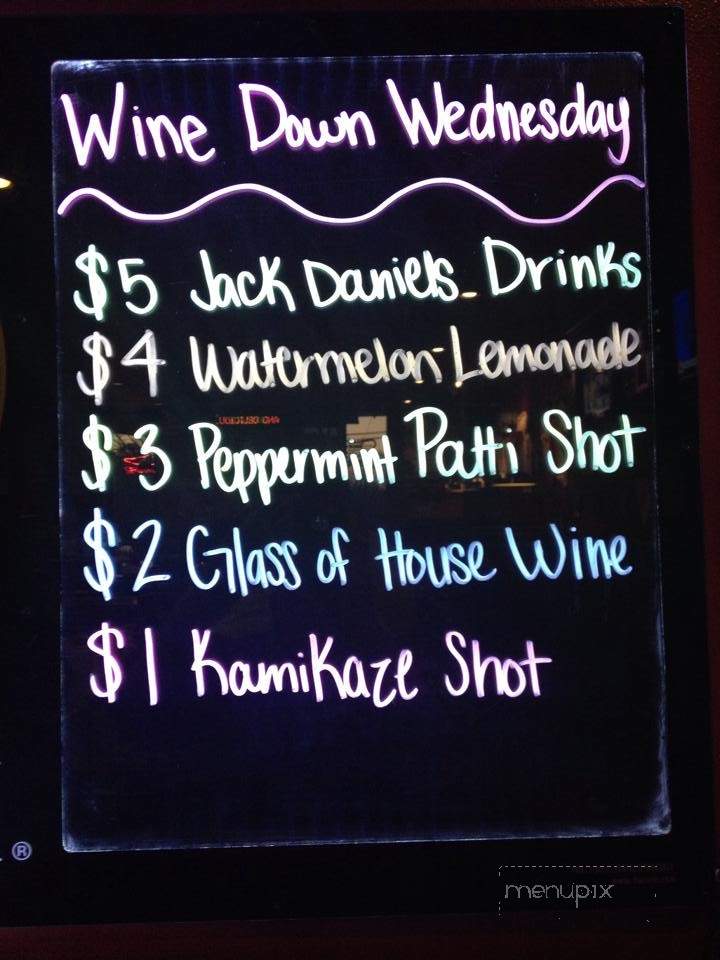 Wine Down Wednesday
$5 Jack Daniels Drinks
$4 Watermelon Lemonade
$3 Peppermint Patti Shot
$2 Glass of House Wine
$1 Kamikaze Shot
®
menupix